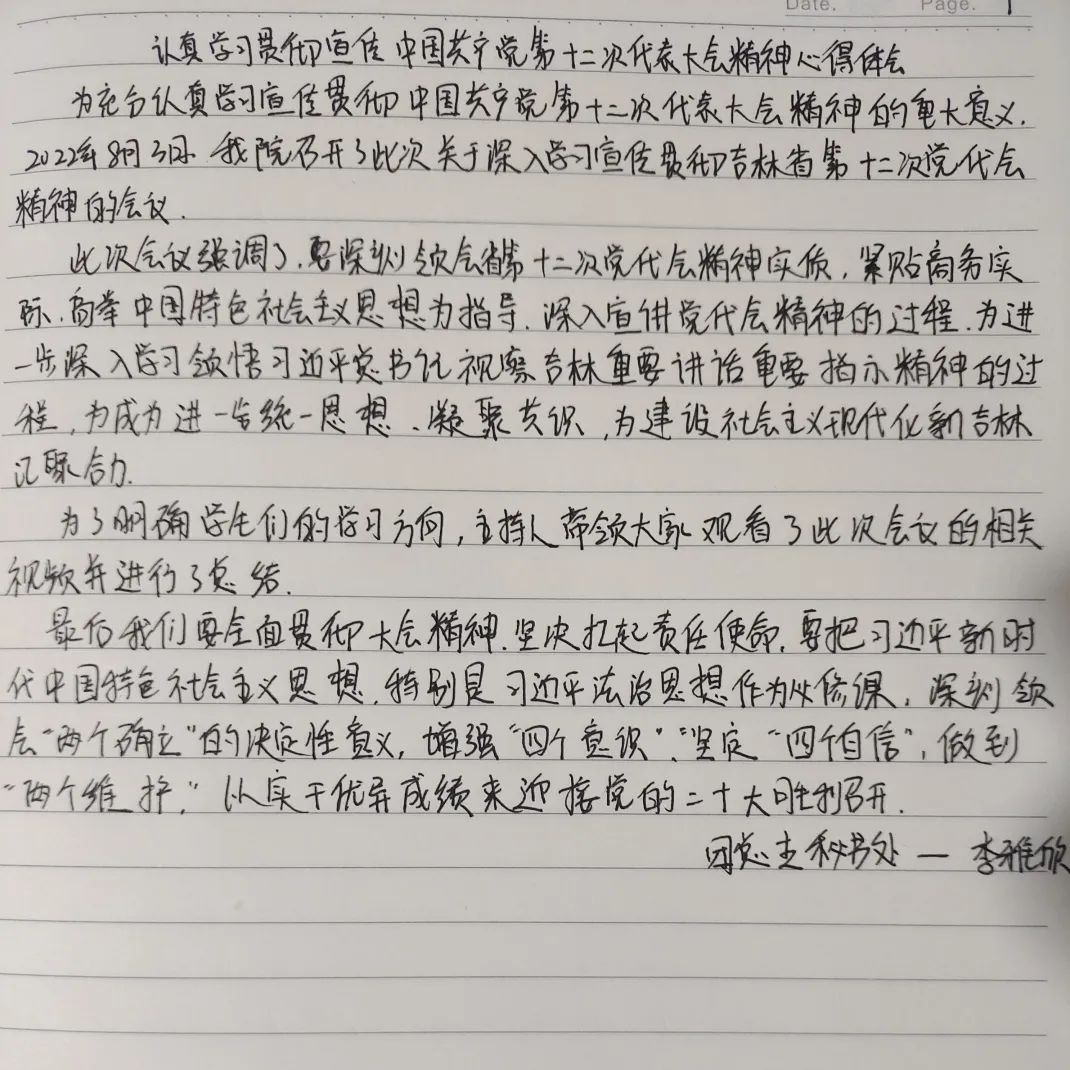 Date. Page. 1
认真学习贯彻宣传中国共产党第十二次代表大会精神心得体会
为充分认真学习宣传贯彻中国共产党第十二次代表大会精神的重大意义.
2022年8月3日.我院召开了此次关于深入学习宣传贯彻吉林省第十二次党代会
精神的会议.
此次会议强调了.要深刻领会省第十二次党代会精神实质,紧贴商务实
际.高举中国特色社会主义思想为指导.深入宣讲党代会精神的过程.为进
一步深入学习领悟习近平总书记视察吉林重要讲话重要指示精神的过
程,为成为进一步统一思想、凝聚共识,为建设社会主义现代化新吉林
汇聚合力.
为了明确学生们的学习方向,主持人带领大家观看了此次会议的相关
视频并进行了总结.
最后我们要全面贯彻大会精神.坚决扛起责任使命.要把习近平新时
代中国特色社会主义思想.特别是习近平法治思想作为必修课,深刻领
会“两个确立”的决定性意义,增强“四个意识”.坚定“四个自信”,做到
“两个维护,”以实干优异成绩来迎接党的二十大胜利召开.
团总支秘书处 — 李雅欣